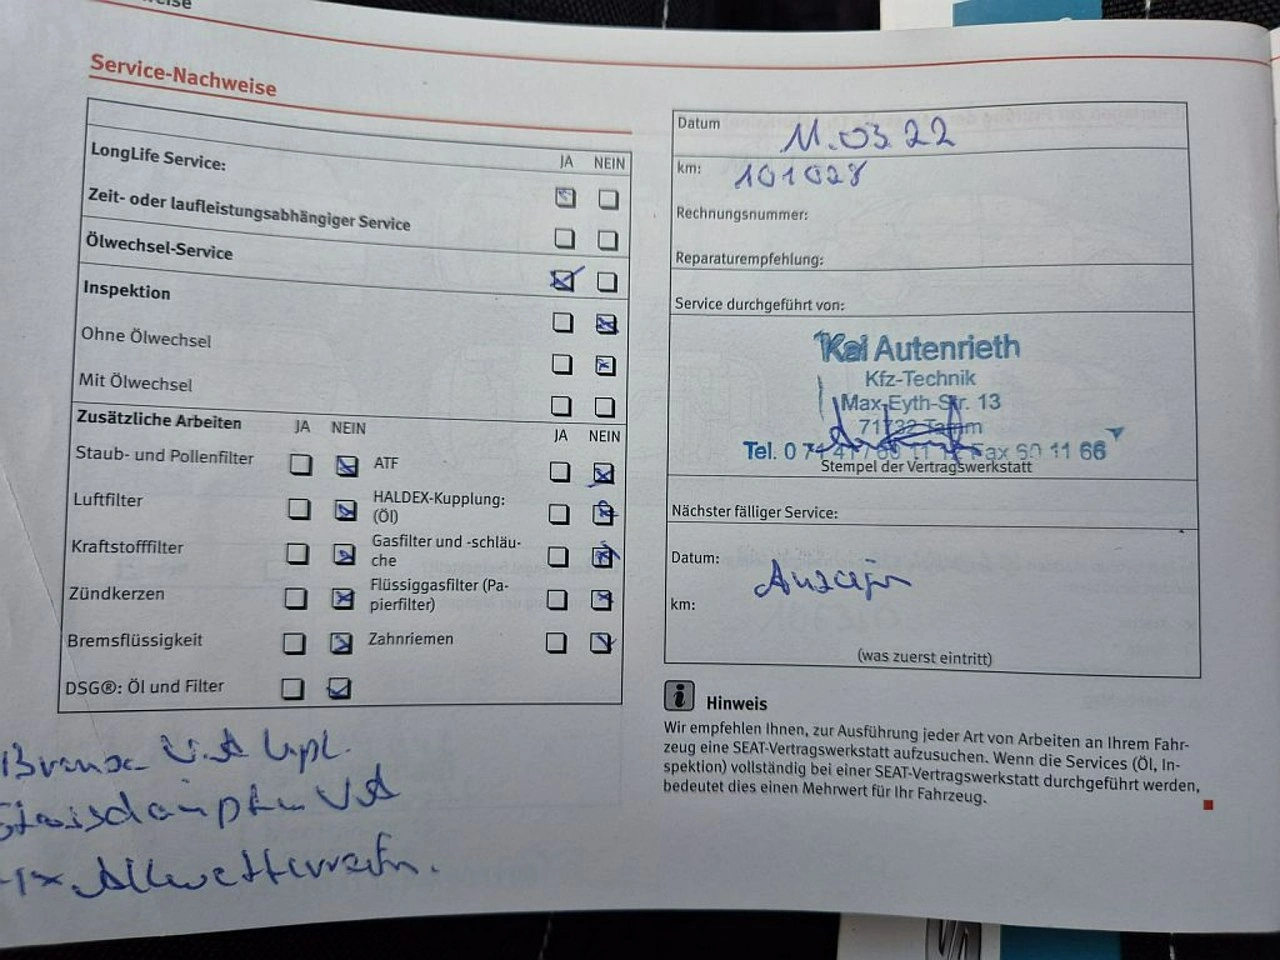 Service-Nachweise
LongLife Service:
JA NEIN
Zeit- oder laufleistungsabhängiger Service
Ölwechsel-Service
Inspektion
Ohne Ölwechsel
Mit Ölwechsel
Zusätzliche Arbeiten JA NEIN
JA NEIN
Staub- und Pollenfilter
ATF
Luftfilter
HALDEX-Kupplung:
(Öl)
Kraftstofffilter
Gasfilter und -schläu-
che
Zündkerzen
Flüssiggasfilter (Pa-
pierfilter)
Bremsflüssigkeit
Zahnriemen
DSG®: Öl und Filter
Bremse V.A kpl.
Stoßdämpfer VA
4x Allwetterreifen.
Datum 11.03.22
km: 101028
Rechnungsnummer:
Reparaturempfehlung:
Service durchgeführt von:
Kai Autenrieth
Kfz-Technik
Max-Eyth-Str. 13
71732 Tamm
Tel. Fax 60 11 66
Stempel der Vertragswerkstatt
Nächster fälliger Service:
Datum:
km:
(was zuerst eintritt)
i Hinweis
Wir empfehlen Ihnen, zur Ausführung jeder Art von Arbeiten an Ihrem Fahr-
zeug eine SEAT-Vertragswerkstatt aufzusuchen. Wenn die Services (Öl, In-
spektion) vollständig bei einer SEAT-Vertragswerkstatt durchgeführt werden,
bedeutet dies einen Mehrwert für Ihr Fahrzeug.